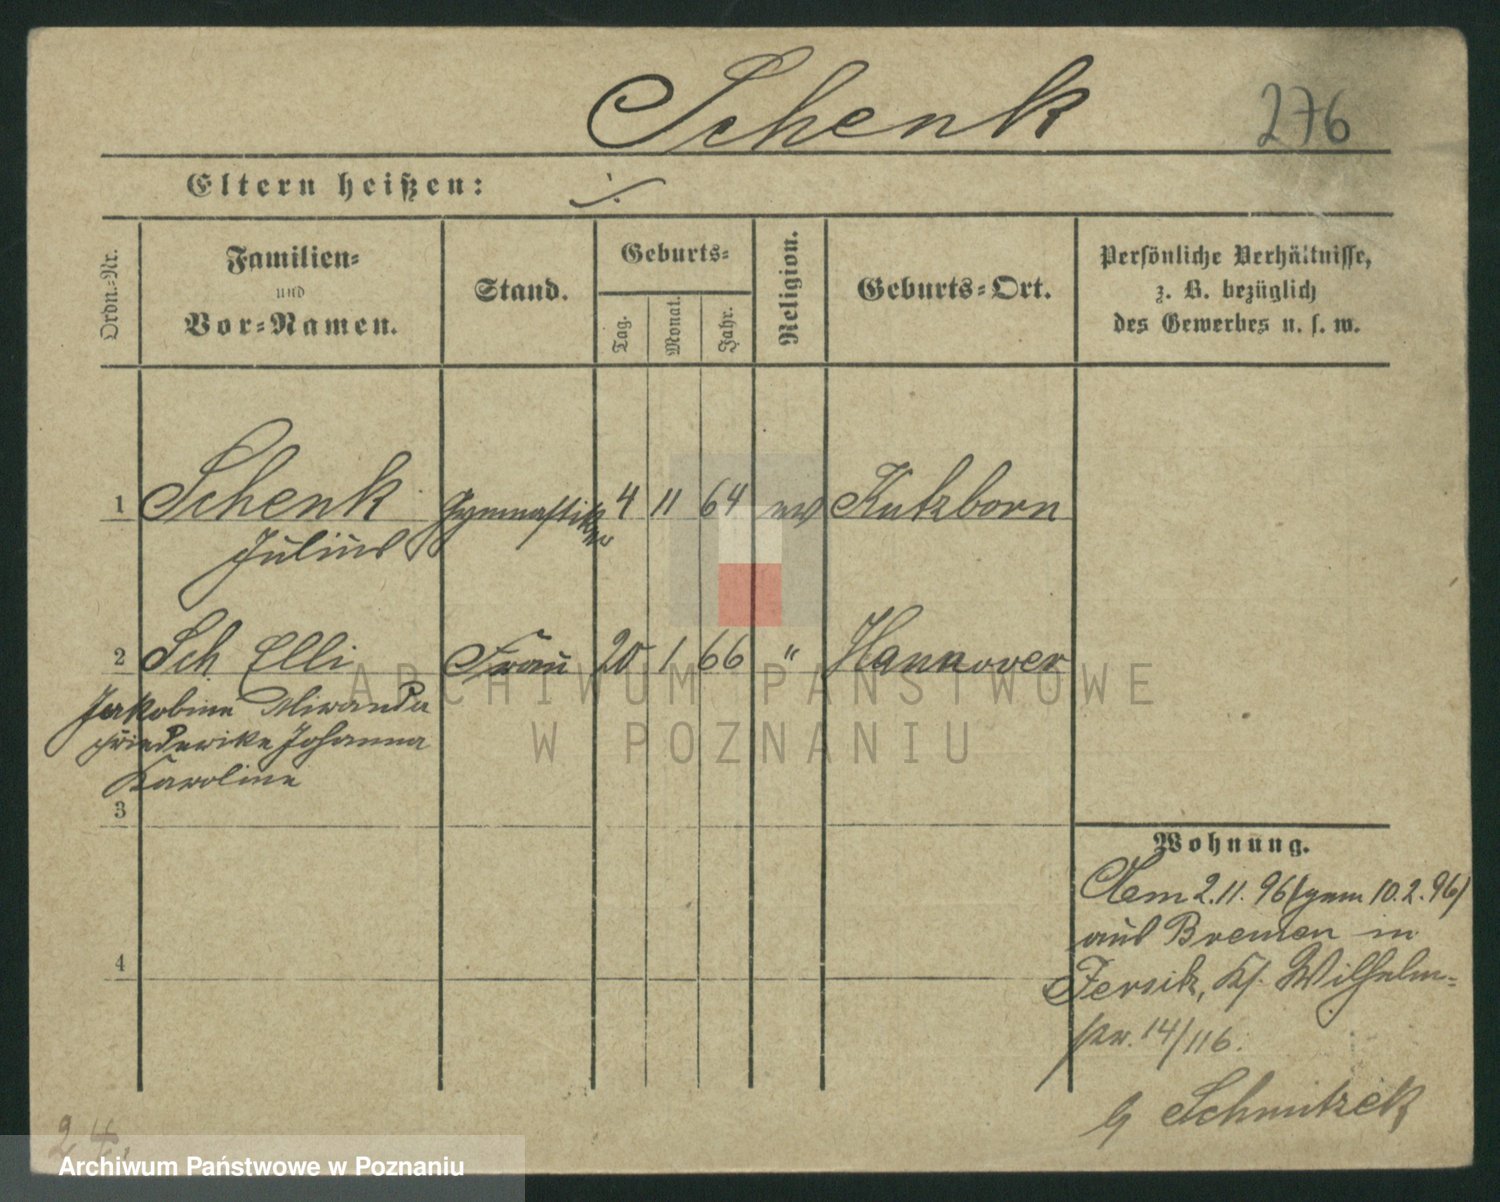 Schenk
276
Eltern heißen: ./.
Ordn.-Nr.
Familien-
und
Vor-Namen.
Stand.
Geburts-
Tag.
Monat.
Jahr.
Religion.
Geburts-Ort.
Persönliche Verhältnisse,
z. B. bezüglich
des Gewerbes u. s. w.
1 Schenk Gymnastiker 4 11 64 ev Kutzborn
Julius
2 Sch Elli Frau 20 1 66 " Hannover
Jakobine Miranda
Friederike Johanna
Karoline
3
4
Wohnung.
Am 2.11.96 (gem 10.2.96)
aus Bremen in
Jersik, Ks. Wilhelm-
str. 14/116.
b/ Schmitzek
24.
ARCHIWUM PAŃSTWOWE
W POZNANIU
Archiwum Państwowe w Poznaniu